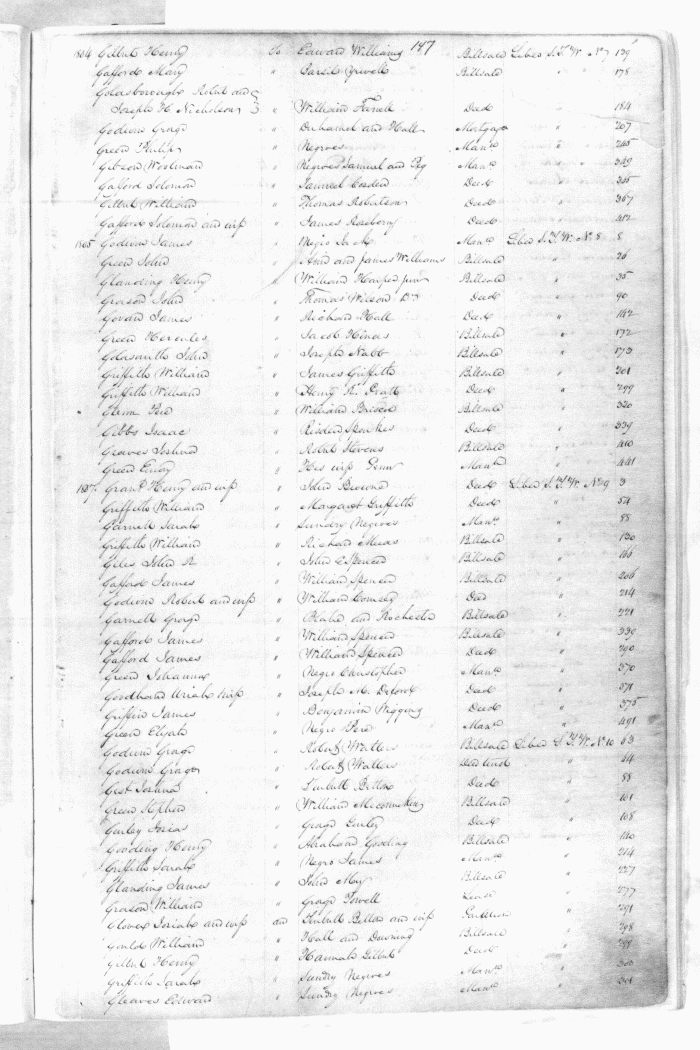 147
1804 Gilbert Henry to Edward Williams Billsale Liber S.T.W. No 7 139
Gafford Mary " Yewell Billsale 178
Goldsborough Robert and
Joseph H. Nicholson " William Farrell Deed 184
Godwin George " Duhamel and Hall Mortgage " 207
Green Philip " Negroes Manu. " 245
Gibson Woolman " Negroes Samuel and Peg Manu. 349
Gafford Solomon " Samuel Cosden Deed 355
Gilbert William " Thomas Robertson Deed " 367
Gafford Solomon and wife " James Roseberry Deed " 412
1805 Godwin James " Negro Jack Manu. Liber S.T.W. No 8 8
Green John " Ann and James Williams Billsale " 26
Glanding Henry " William Hooper junr Billsale " 35
Grason John " Thomas Wilson Deed " 90
Govan James " Richard Hall Deed " 142
Green Hercules " Jacob Hinds Billsale " 172
Goldsmith John " Joseph Nabb Billsale " 173
Griffith William " James Griffith Billsale " 201
Griffith William " Henry Pratt Deed " 299
William Billsale " 320
Gibbs Isaac " Risden Deed " 339
Graves Joshua " Robert Stevens Billsale " 410
Green Emory " His wife Manu. " 441
1807 Grant Henry and wife " John Browne Deed Liber S.T.W. No 9 3
Griffith William " Margaret Griffith Deed " 54
Garnett Sarah " Sundry Negroes Manu. " 88
Griffith William " Richard Billsale " 130
Giles John R " John C Spencer Billsale " 166
Gafford James " William Spencer Billsale " 206
Godwin Robert and wife " William Comsey Deed " 214
Garnett George " Blake and Rochester Billsale " 221
Gafford James " William Spencer Billsale " 239
Gafford James " William Spencer Deed " 290
Green Johannes " Negro Christopher Manu. " 370
Goodhand wife " Joseph M. Deford Deed " 371
Griffin James " Benjamin Wiggins Deed " 375
Green Elijah " Negro Pere Manu. " 491
Godwin George " Robert Walters Billsale Liber S.T.W. No 10 63
Godwin George " Robert Walters " 64
Gest Joshua " Turbutt Betton Deed " 88
Green Stephen " William Meconnekin Billsale " 101
Gurley Josias " George Gurley Deed " 108
Gooding Henry " Abraham Gooding Billsale " 140
Griffith Sarah " Negro James Manu. " 214
Glanding James " John May Billsale " 227
Grason William " George Powell Lease " 277
Glover Josiah and wife and Turbutt Betton and wife Partition " 291
Gould William " Hall and Downing Billsale " 298
Gilbert Henry " Hannah Gilbert Deed " 299
Griffith Sarah " Sundry Negroes Manu. " 300
Gleaves Edward " Sundry Negroes Manu. " 301